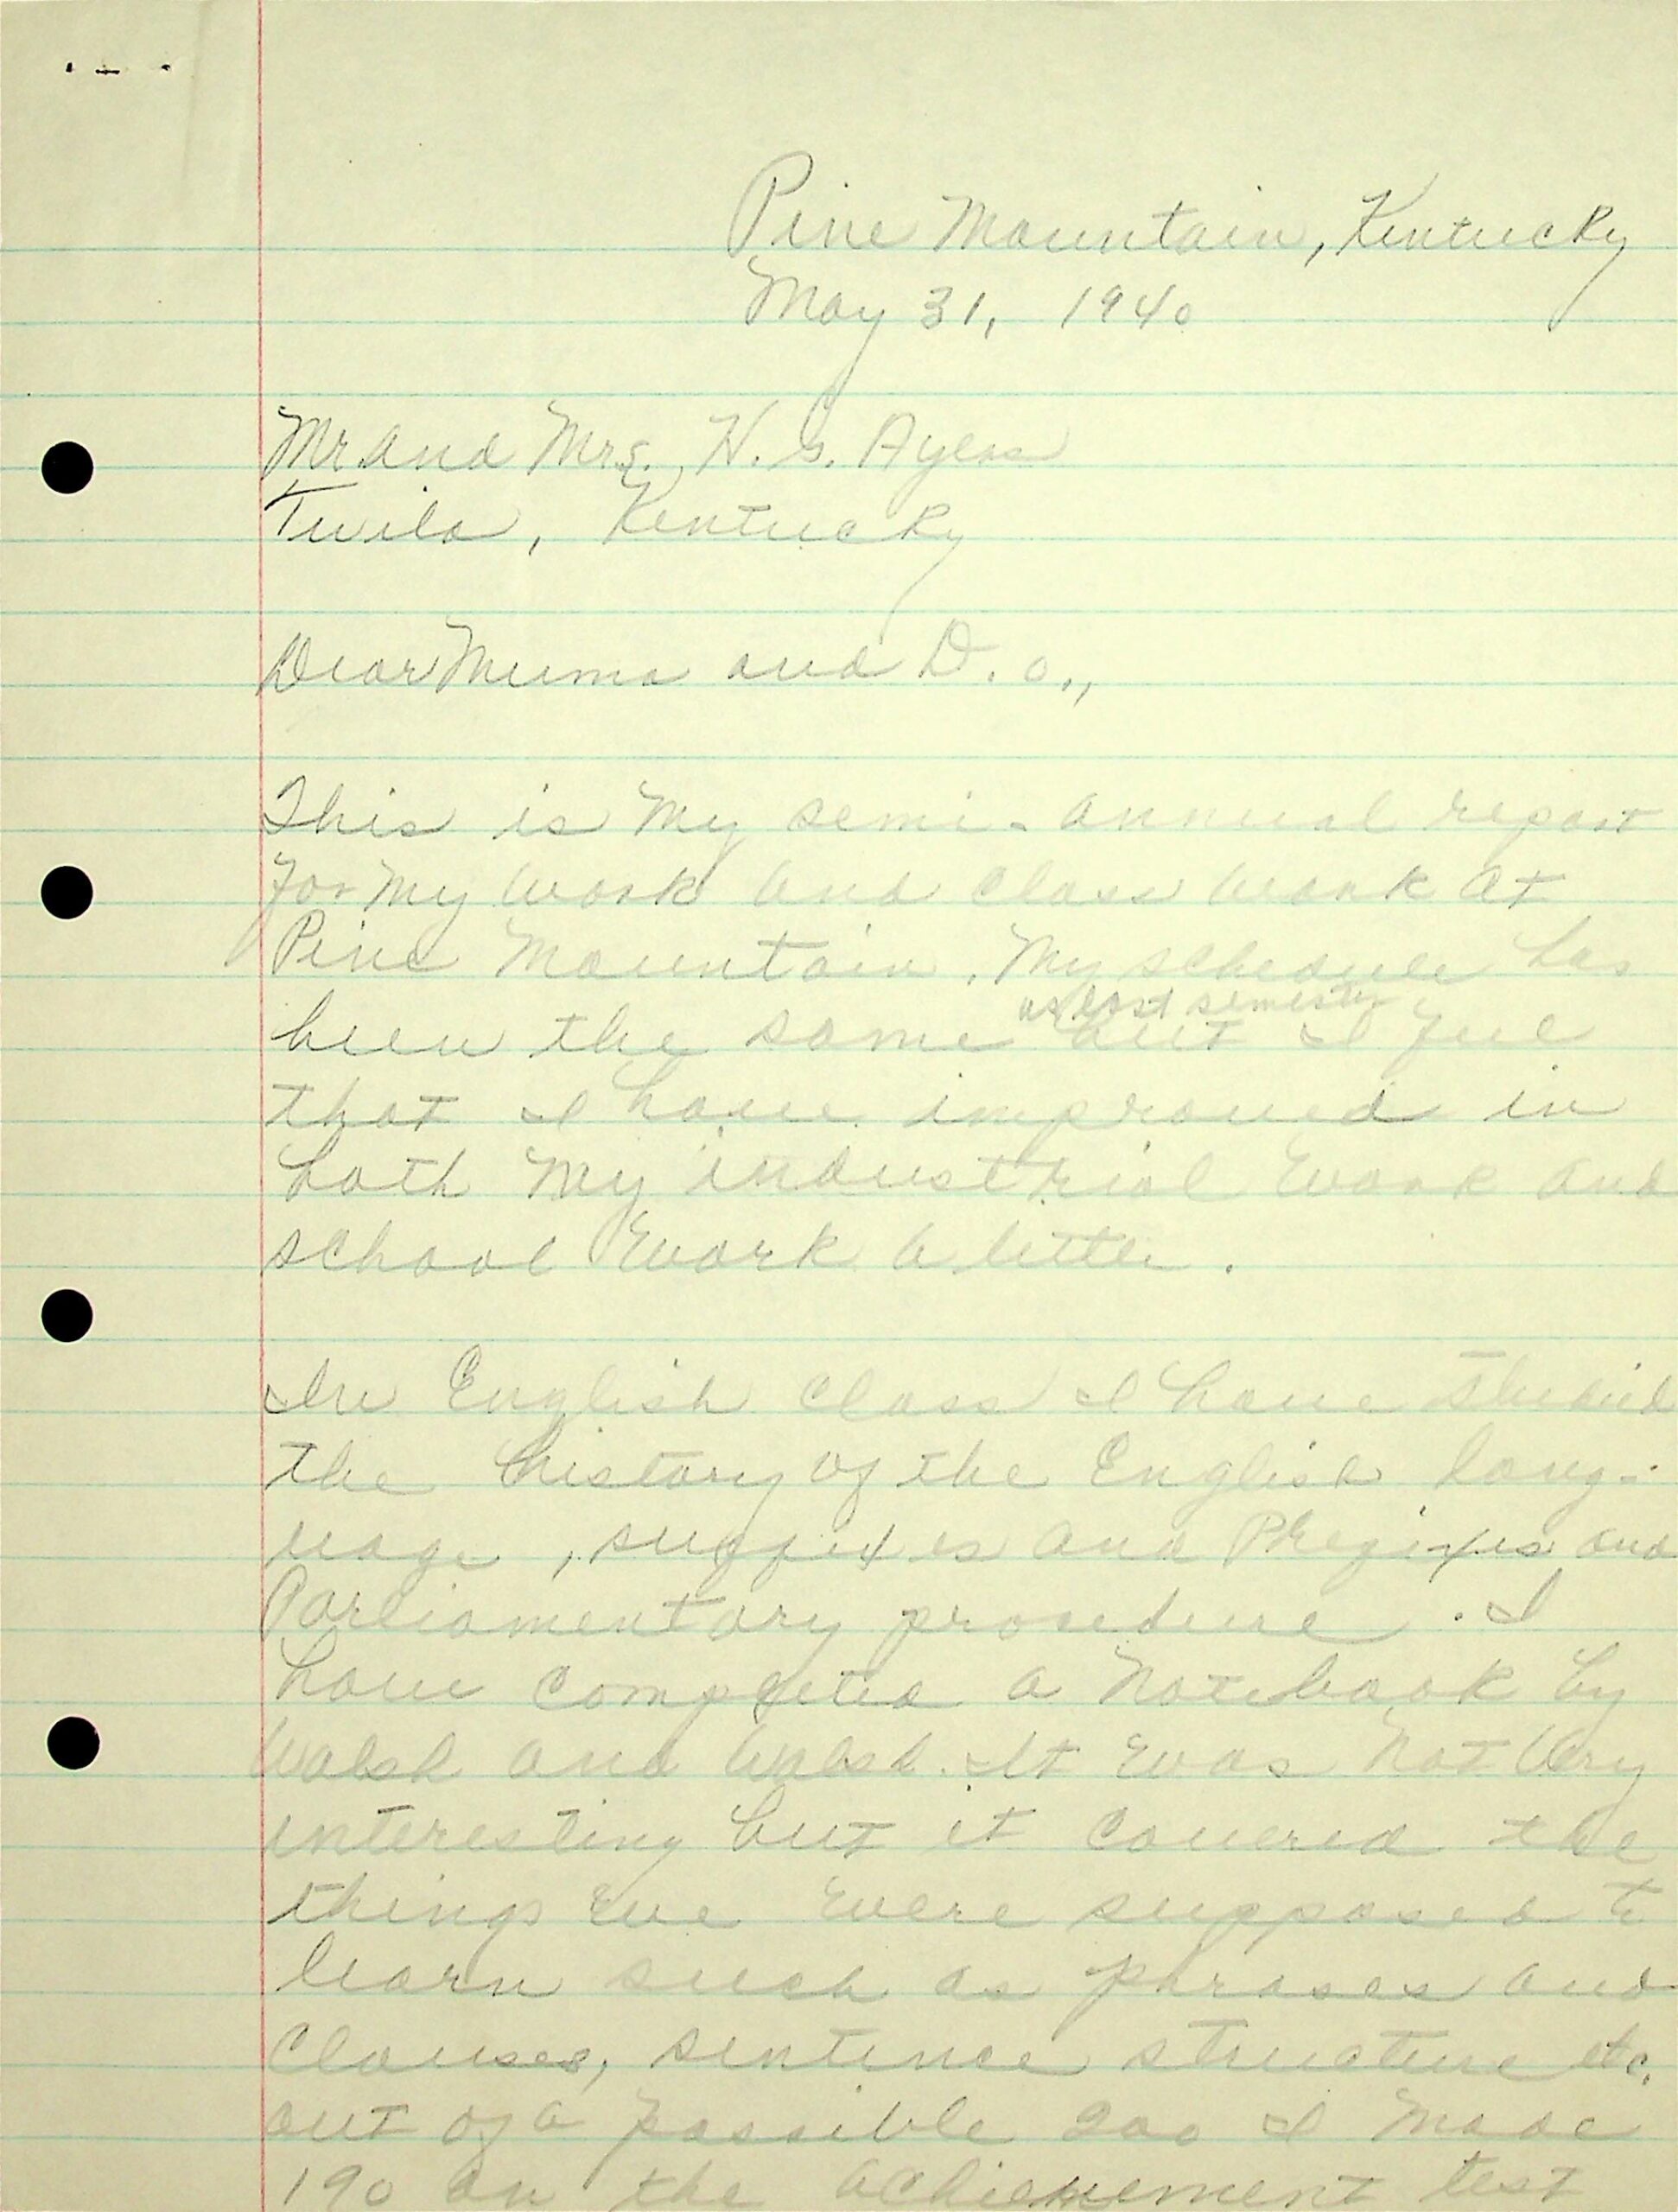 Pine Mountain, Kentucky
May 31, 1940
Mr and Mrs. H. G. Ayers
Twila, Kentucky
Dear Muma and D.o.,
This is My semi-annual report
for My work and class work at
Pine Mountain. My schedule has
as last semester
been the same but I feel
that I have improved in
both my industrial work and
school work a little.
In English class I have studied
the history of the English lang-
uage, suffixes and Prefixes and
Parliamentary prosedure. I
have completed a Notebook by
Walsh and Walsh. It was Not Very
interesting but it covered the
things we were supposed to
learn such as phrases and
Clauses, sentence structure etc.
out of a possible 200 I made
190 on the achievement test